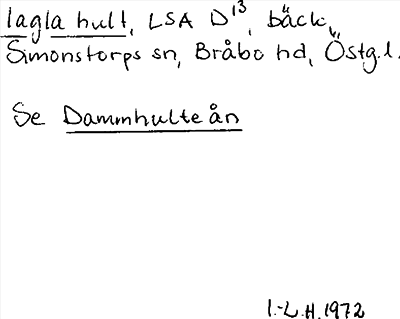 lagla hult, LSA D¹³, bäck,
Simonstorps sn, Bråbo hd, Östg.l.
Se Dammhulteån
I.-L.H. 1972